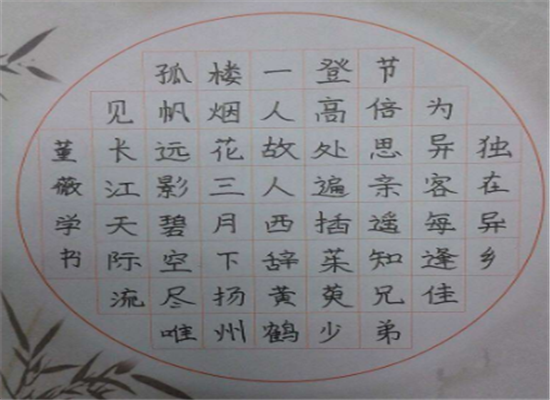 独在异乡
为异客每逢佳
节倍思亲遥知兄弟
登高处遍插茱萸少
一人故人西辞黄鹤
楼烟花三月下扬州
孤帆远影碧空尽唯
见长江天际流
董薇学书